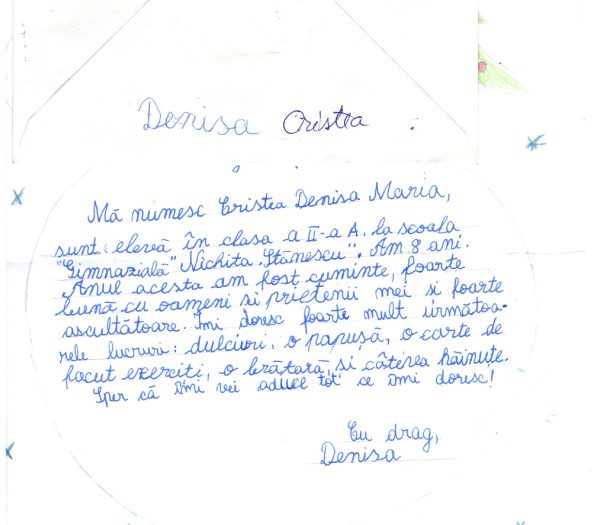 Denisa Cristea
Mă numesc Cristea Denisa Maria,
sunt elevă în clasa a II-a A. la scoala
"Gimnazială" Nichita Stănescu". Am 8 ani.
Anul acesta am fost cuminte, foarte
bună cu oameni si prietenii mei si foarte
ascultătoare. Îmi doresc foarte mult următoa-
rele lucruri: dulciuri, o papusă, o carte de
facut exerciti, o brătară, si câteva hăinute.
Sper că îmi vei aduce tot ce îmi doresc!
Cu drag,
Denisa